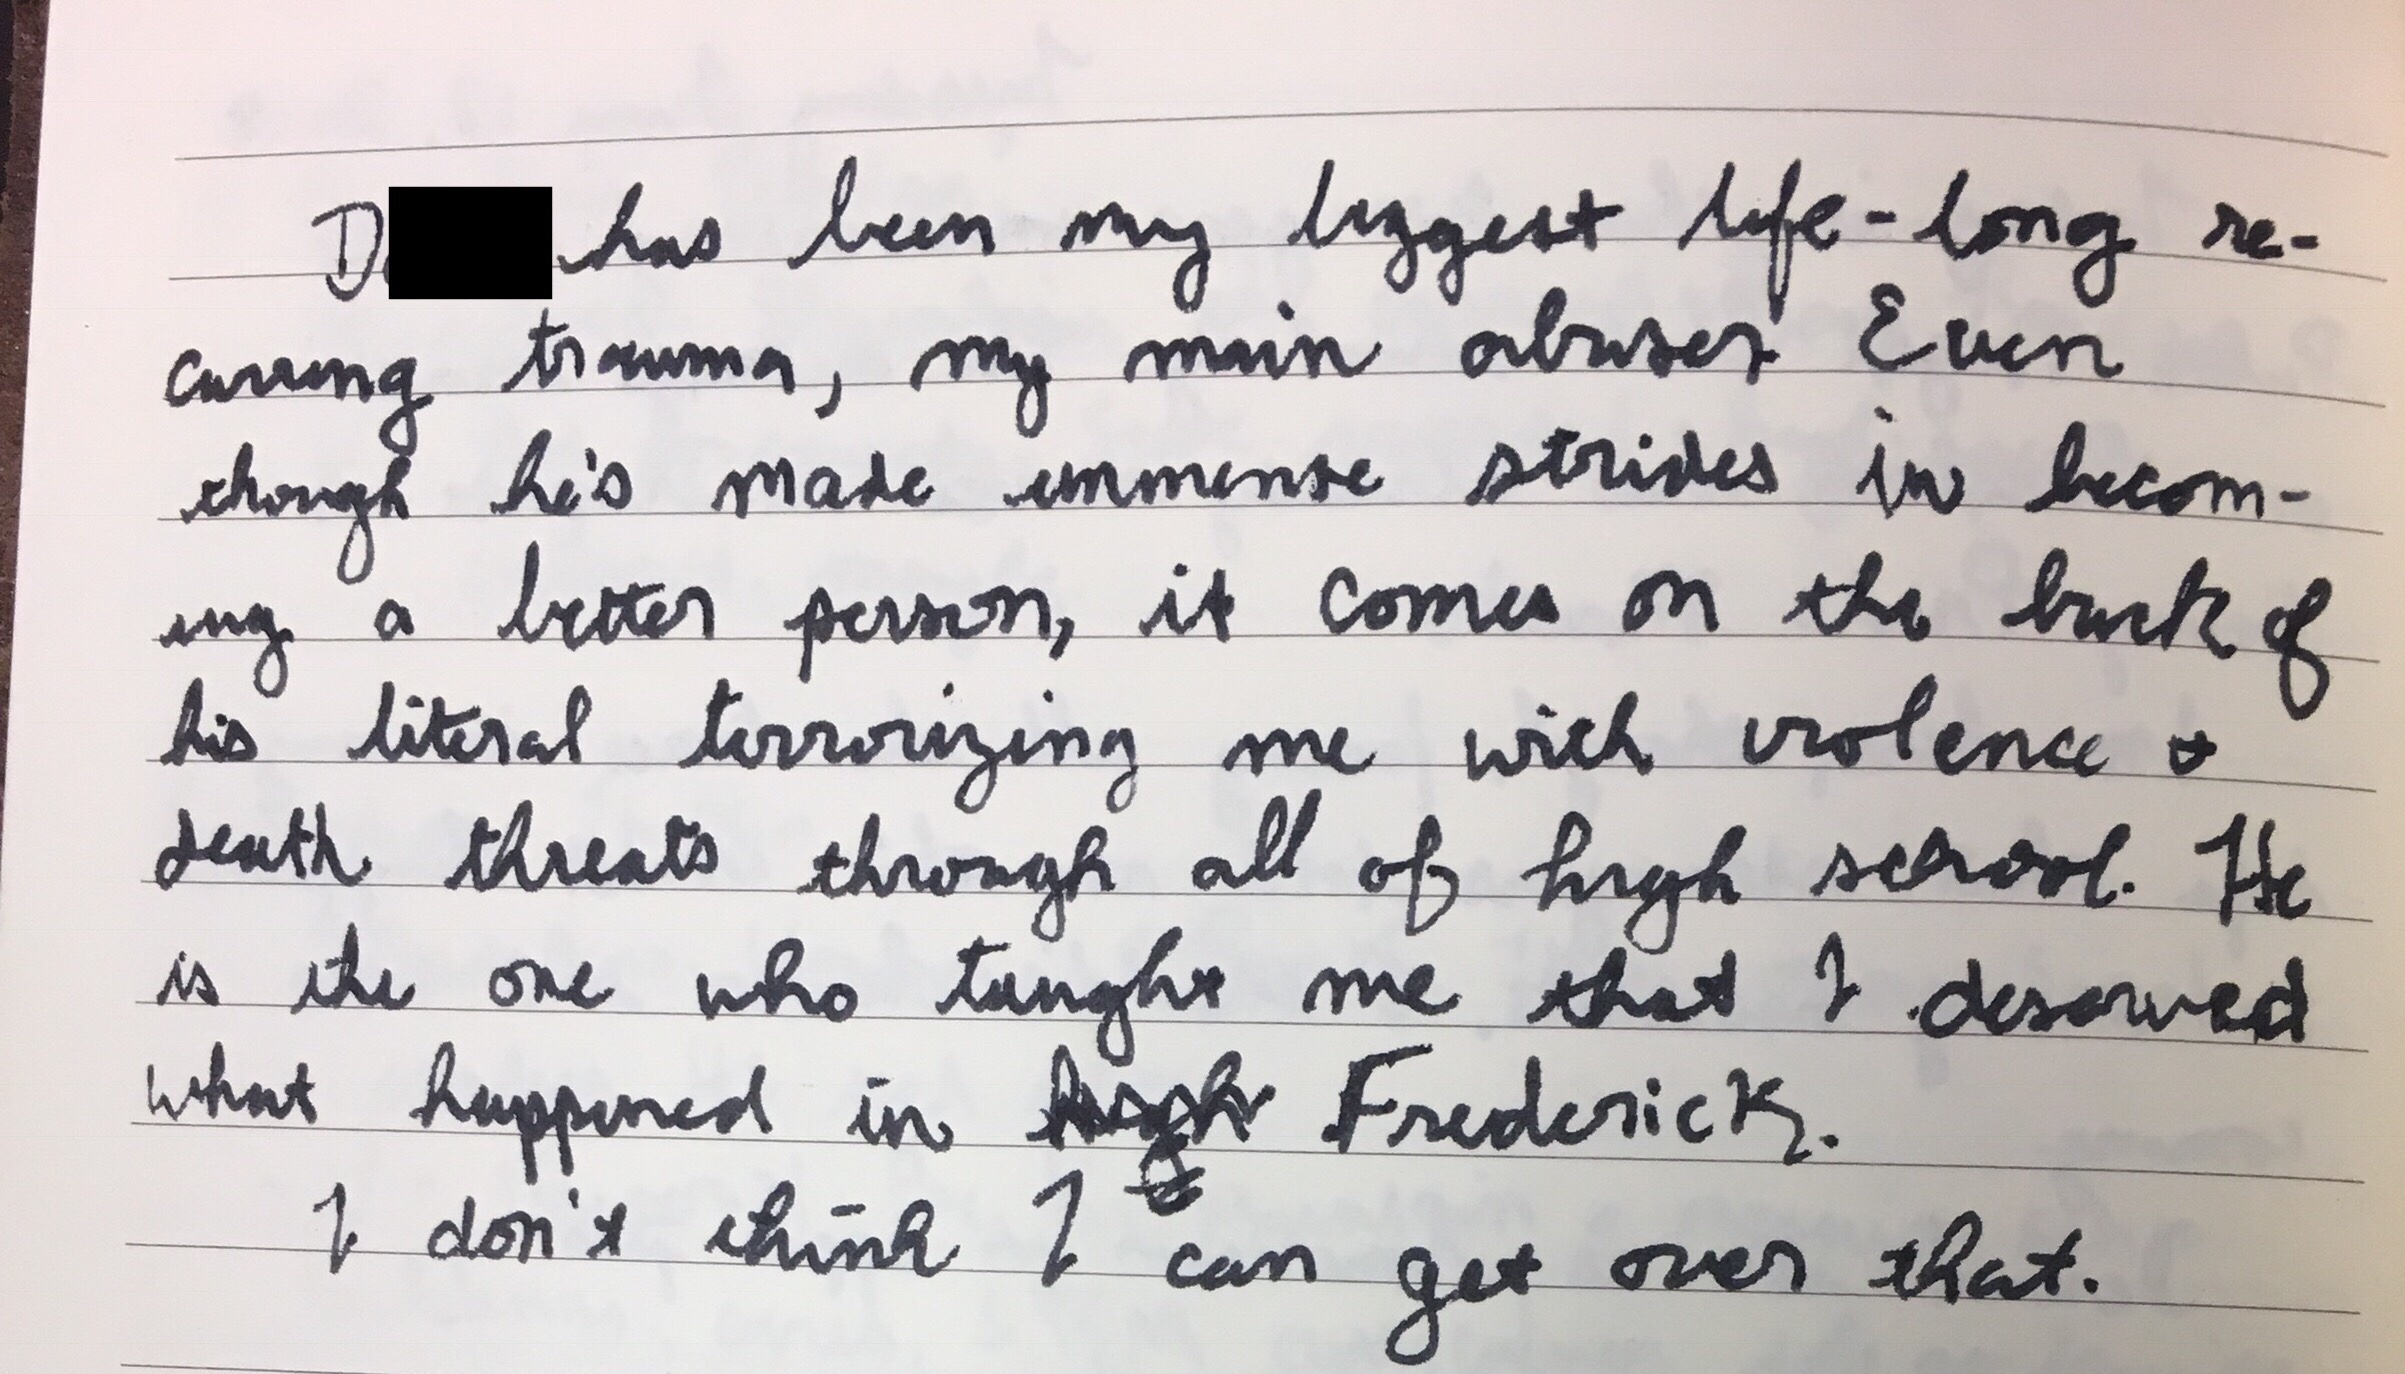 D has been my biggest life-long re-
curring trauma, my main abuser Even
though he's made immense strides in becom-
ing a better person, it comes on the back of
his literal terrorizing me with violence &
death threats through all of high school. He
is the one who taught me that I deserved
what happened in high Frederick.
I don't think I can get over that.